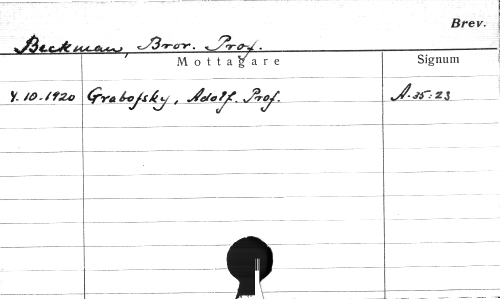 Brev.
Beckman, Bror. Prof.
Mottagare Signum
4.10.1920 Grabofsky, Adolf. Prof. A.35:23